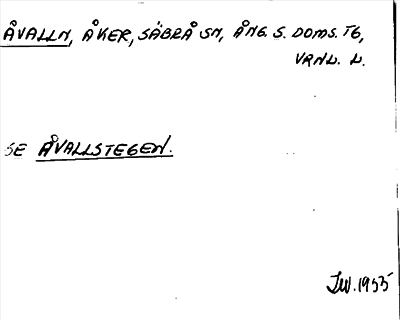 ÅVALLN, ÅKER, SÄBRÅ SN, ÅNG. S. DOMS. TG,
VRNL. L.
SE ÅVALLSTEGEN.
JW. 1955